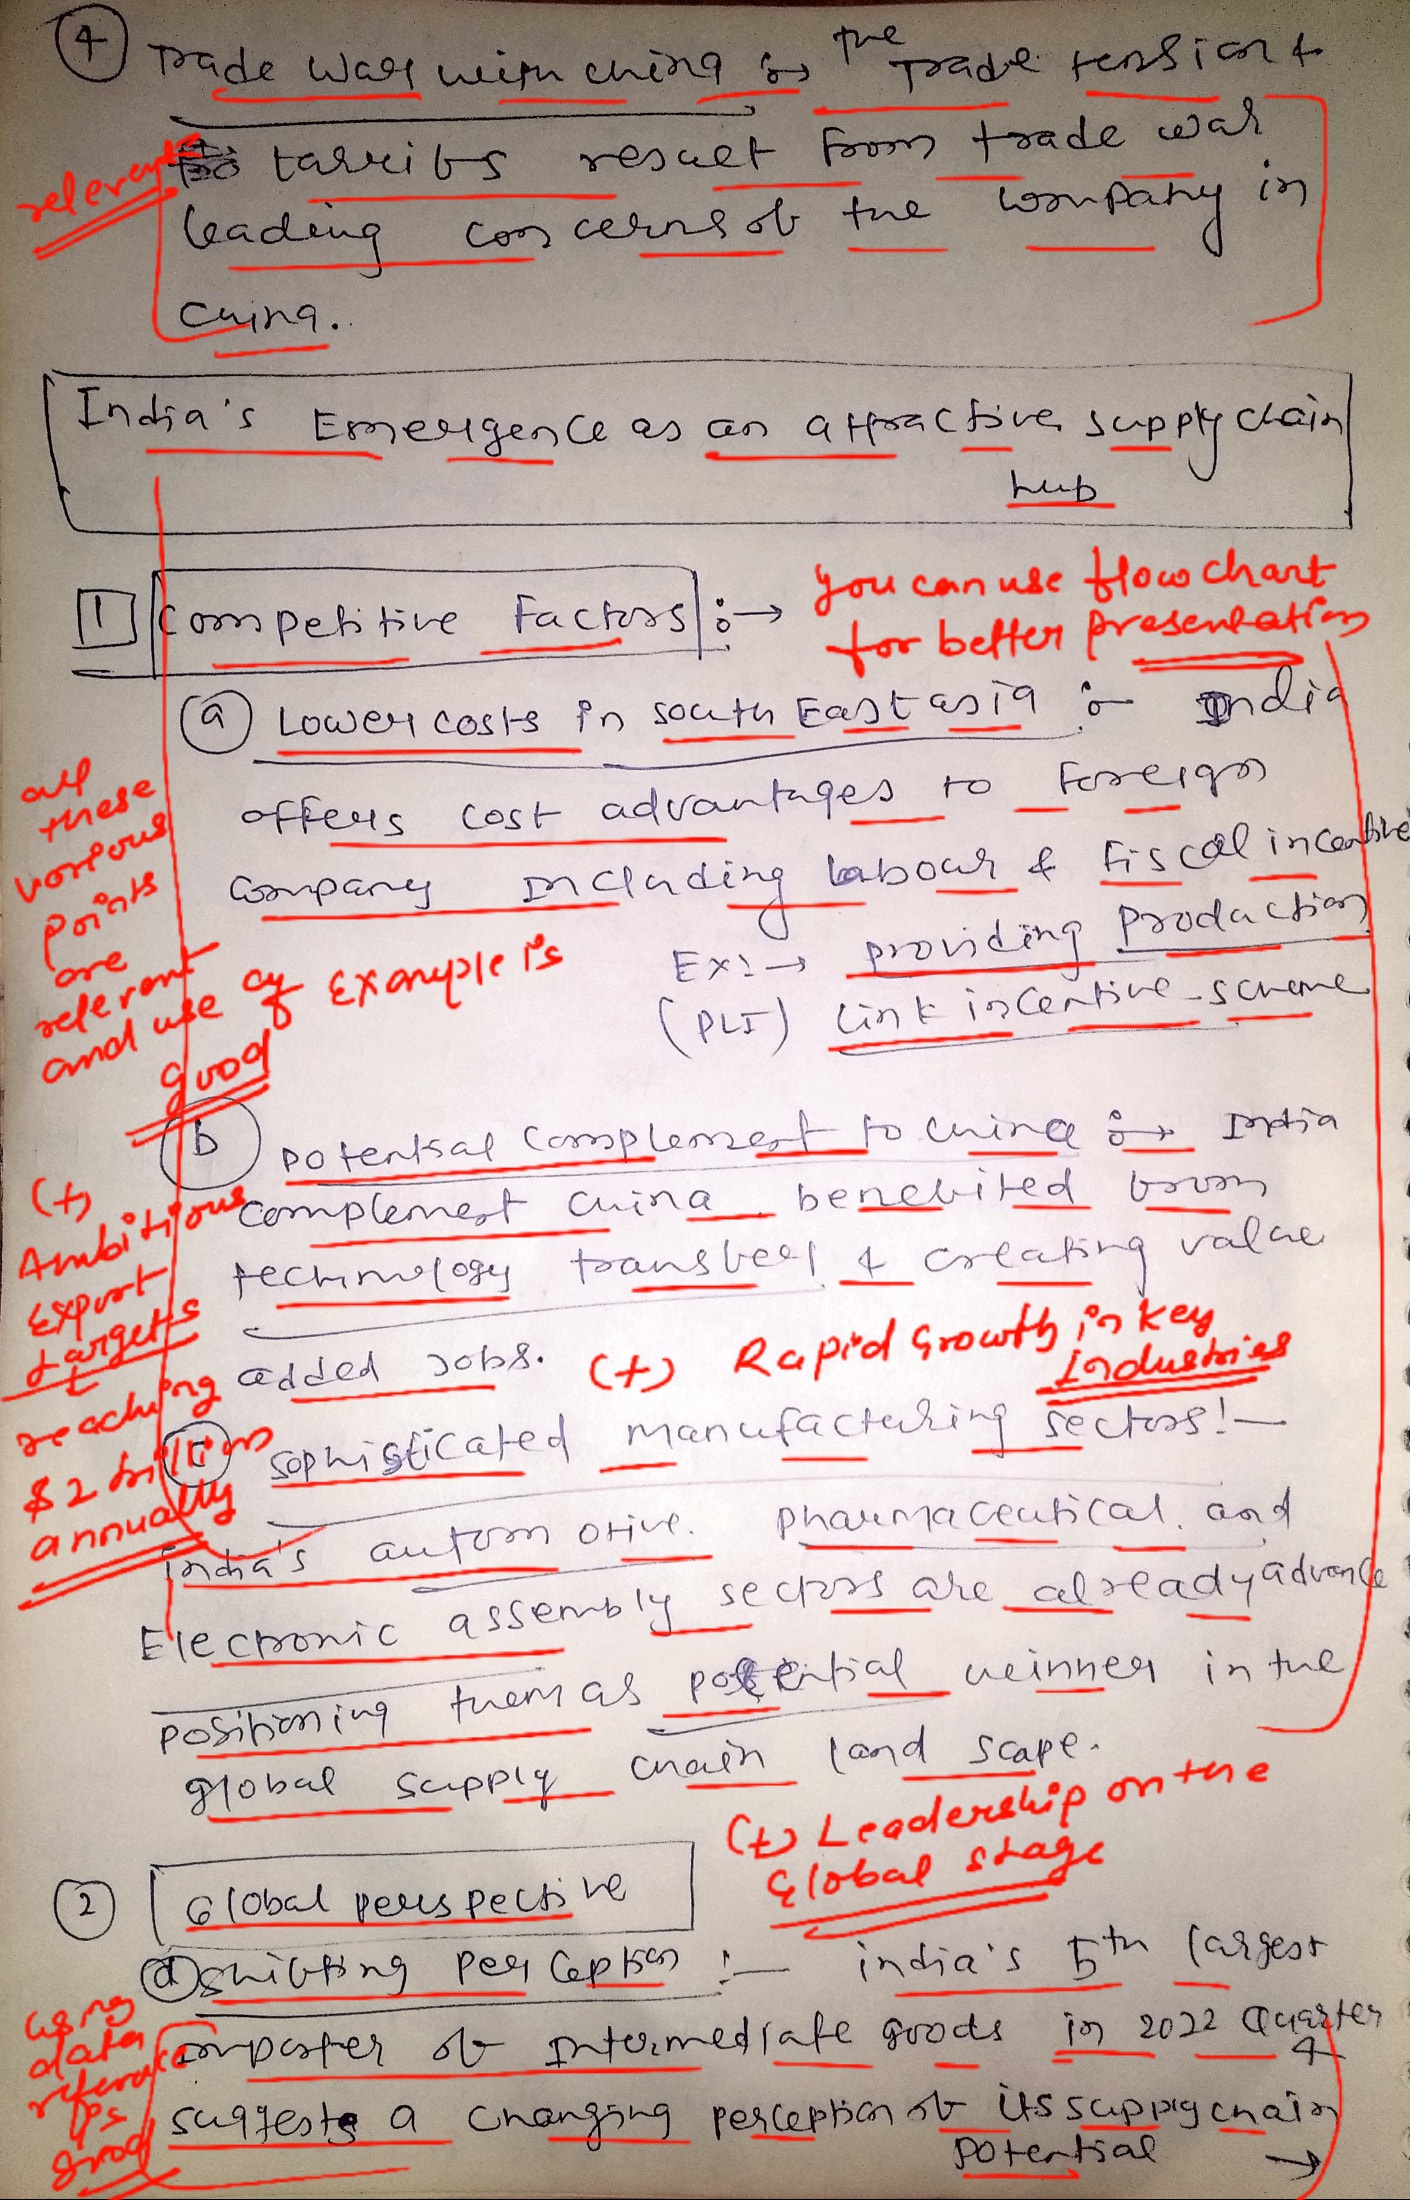 4 Trade War with china :→ the Trade tension &
relevant
tarrifs result from trade war
leading concerns of the company in
china.
India's Emergence as an attractive supply chain
hub
1 Competitive Factors :→
you can use flow chart
for better presentation
a Lower costs in south East asia :- India
offers cost advantages to foreign
company including labour & fiscal incentive
Ex:→ providing production
(PLI) link incentive scheme
all
these
various
points
are
relevant
and use of Example is
good
b potential complement to china :→ India
complement china benefited from
technology transfer & creating value
added jobs.
(+) Rapid Growth in key
Industries
(+)
Ambitious
Export
targets
reaching
$2 trillion
annually
c sophisticated manufacturing sectors:-
india's automotive. pharmaceutical. and
Electronic assembly sectors are already advance
positioning them as potential winner in the
global supply chain land scape.
(+) Leadership on the
Global stage
2 Global perspective
a shifting perception :- india's 5th largest
importer of intermediate goods in 2022 Quarter
4
suggests a changing perception of its supply chain
potential →
using
data
reference
is
good